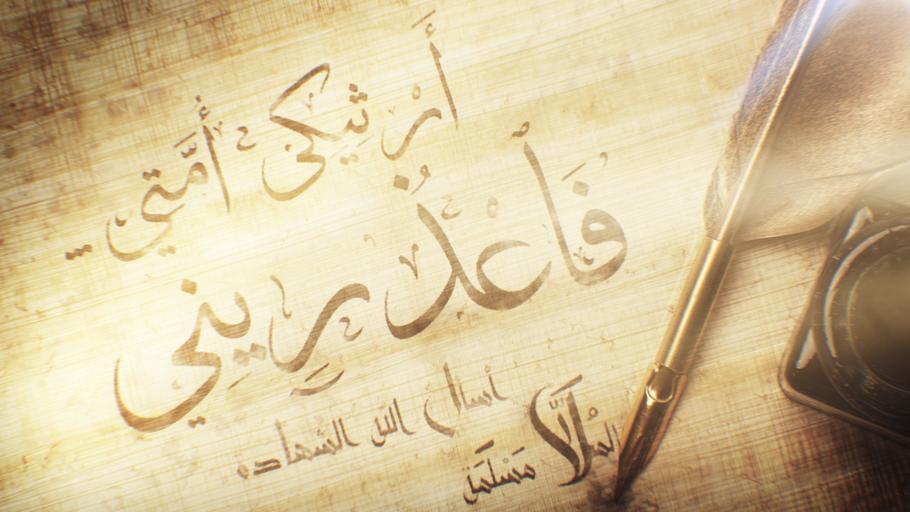 أَرْثِيكِ أُمَّتِي...
فَاعْذُرِينِي
أسأل الله الشهاده
المُلَّا مَسْلَمَة